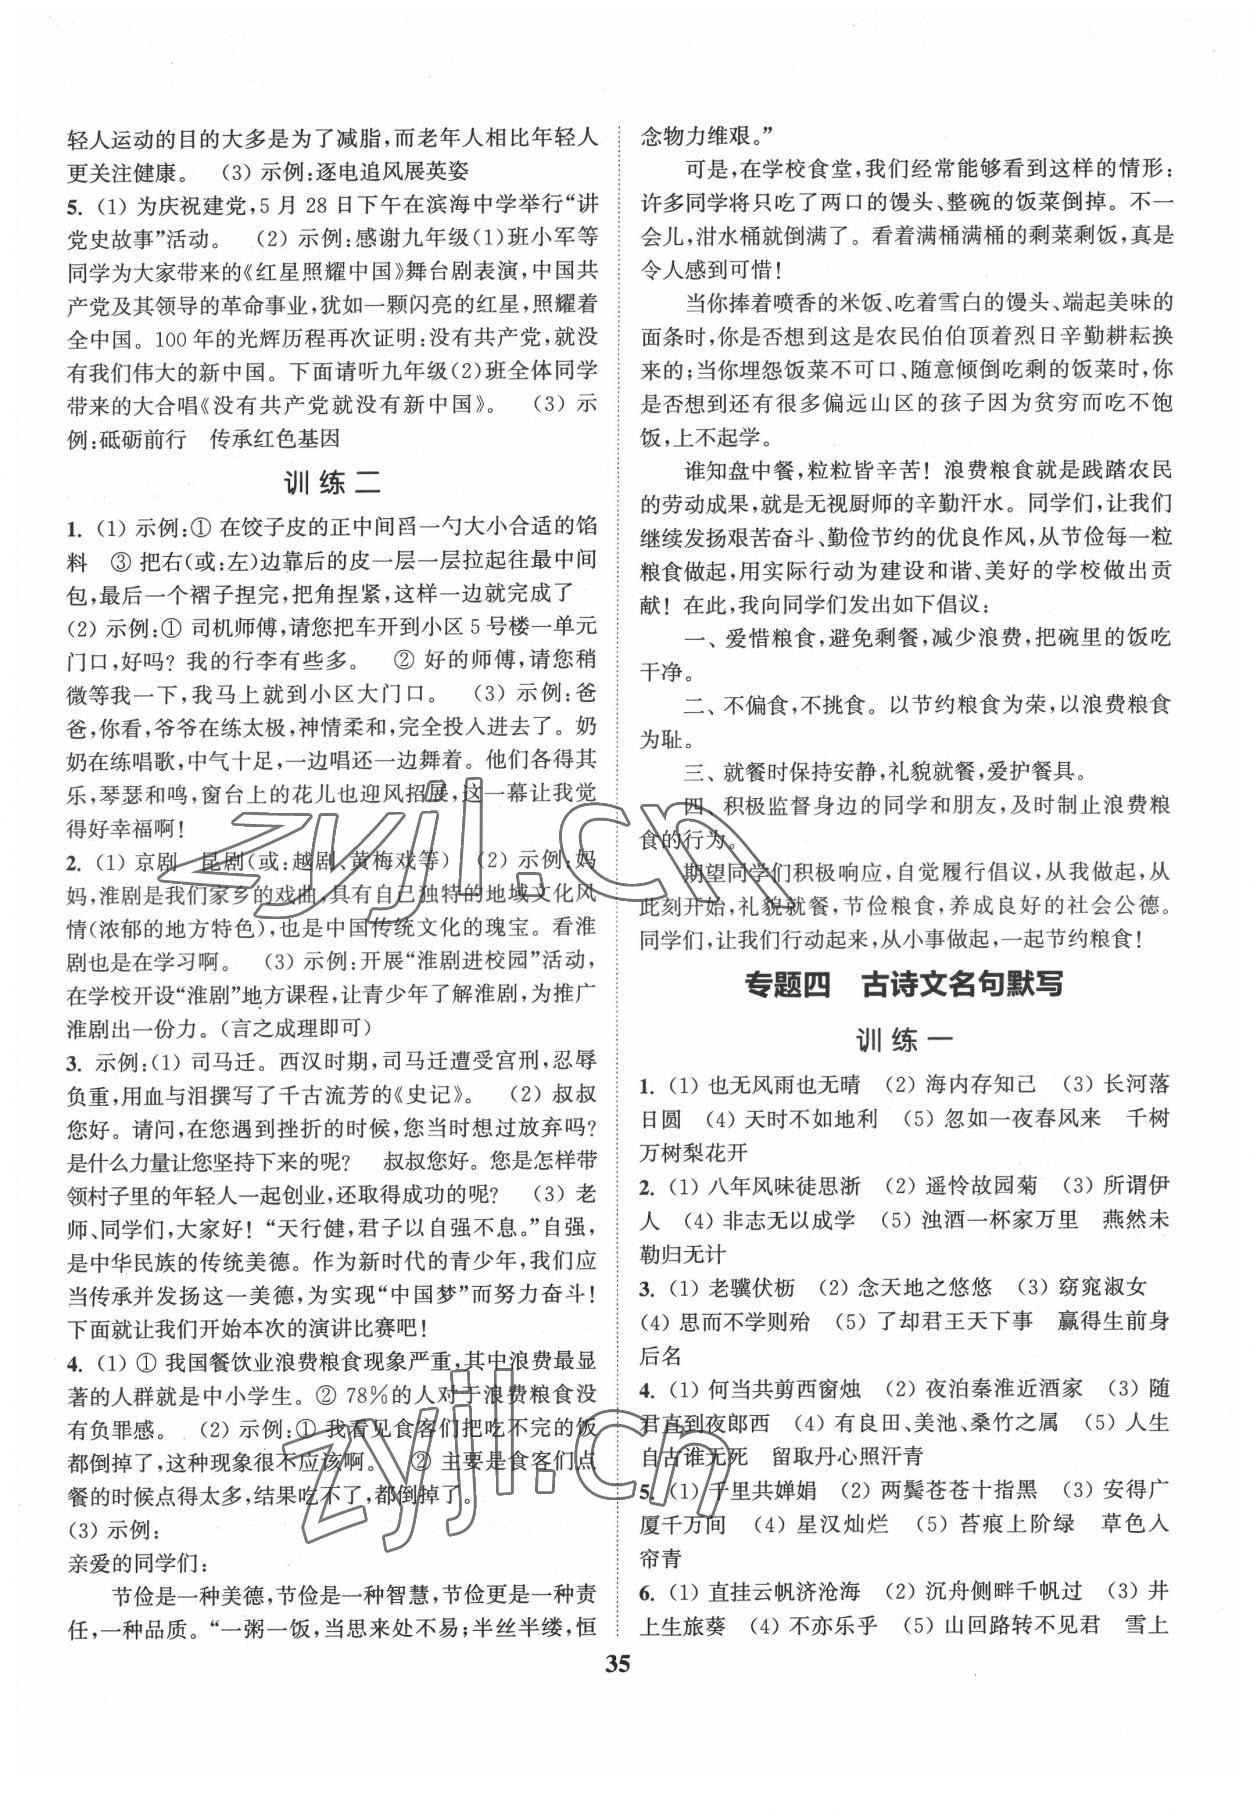 轻人运动的目的大多是为了减脂,而老年人相比年轻人
更关注健康。 (3) 示例:逐电追风展英姿
5. (1) 为庆祝建党,5 月 28 日下午在滨海中学举行“讲
党史故事”活动。 (2) 示例:感谢九年级(1)班小军等
同学为大家带来的《红星照耀中国》舞台剧表演,中国共
产党及其领导的革命事业,犹如一颗闪亮的红星,照耀着
全中国。100 年的光辉历程再次证明:没有共产党,就没
有我们伟大的新中国。下面请听九年级(2)班全体同学
带来的大合唱《没有共产党就没有新中国》。 (3) 示
例:砥砺前行 传承红色基因
训练二
1. (1) 示例:① 在饺子皮的正中间舀一勺大小合适的馅
料 ③ 把右(或:左)边靠后的皮一层一层拉起往最中间
包,最后一个褶子捏完,把角捏紧,这样一边就完成了
(2) 示例:① 司机师傅,请您把车开到小区 5 号楼一单元
门口,好吗? 我的行李有些多。 ② 好的师傅,请您稍
微等我一下,我马上就到小区大门口。 (3) 示例:爸
爸,你看,爷爷在练太极,神情柔和,完全投入进去了。奶
奶在练唱歌,中气十足,一边唱还一边舞着。他们各得其
乐,琴瑟和鸣,窗台上的花儿也迎风招展,这一幕让我觉
得好幸福啊!
2. (1) 京剧 昆剧(或:越剧、黄梅戏等) (2) 示例:妈
妈,淮剧是我们家乡的戏曲,具有自己独特的地域文化风
情(浓郁的地方特色),也是中国传统文化的瑰宝。看淮
剧也是在学习啊。 (3) 示例:开展“淮剧进校园”活动,
在学校开设“淮剧”地方课程,让青少年了解淮剧,为推广
淮剧出一份力。(言之成理即可)
3. 示例:(1) 司马迁。西汉时期,司马迁遭受宫刑,忍辱
负重,用血与泪撰写了千古流芳的《史记》。 (2) 叔叔
您好。请问,在您遇到挫折的时候,您当时想过放弃吗?
是什么力量让您坚持下来的呢? 叔叔您好。您是怎样带
领村子里的年轻人一起创业,还取得成功的呢? (3) 老
师、同学们,大家好! “天行健,君子以自强不息。”自强,
是中华民族的传统美德。作为新时代的青少年,我们应
当传承并发扬这一美德,为实现“中国梦”而努力奋斗!
下面就让我们开始本次的演讲比赛吧!
4. (1) ① 我国餐饮业浪费粮食现象严重,其中浪费最显
著的人群就是中小学生。② 78%的人对于浪费粮食没
有负罪感。 (2) 示例:① 我看见食客们把吃不完的饭
都倒掉了,这种现象很不应该啊。 ② 主要是食客们点
餐的时候点得太多,结果吃不了,都倒掉了。
(3) 示例:
亲爱的同学们:
节俭是一种美德,节俭是一种智慧,节俭更是一种责
任,一种品质。“一粥一饭,当思来处不易;半丝半缕,恒
念物力维艰。”
可是,在学校食堂,我们经常能够看到这样的情形:
许多同学将只吃了两口的馒头、整碗的饭菜倒掉。不一
会儿,泔水桶就倒满了。看着满桶满桶的剩菜剩饭,真是
令人感到可惜!
当你捧着喷香的米饭、吃着雪白的馒头、端起美味的
面条时,你是否想到这是农民伯伯顶着烈日辛勤耕耘换
来的;当你埋怨饭菜不可口、随意倾倒吃剩的饭菜时,你
是否想到还有很多偏远山区的孩子因为贫穷而吃不饱
饭,上不起学。
谁知盘中餐,粒粒皆辛苦! 浪费粮食就是践踏农民
的劳动成果,就是无视厨师的辛勤汗水。同学们,让我们
继续发扬艰苦奋斗、勤俭节约的优良作风,从节俭每一粒
粮食做起,用实际行动为建设和谐、美好的学校做出贡
献! 在此,我向同学们发出如下倡议:
一、爱惜粮食,避免剩餐,减少浪费,把碗里的饭吃
干净。
二、不偏食,不挑食。以节约粮食为荣,以浪费粮食
为耻。
三、就餐时保持安静,礼貌就餐,爱护餐具。
四、积极监督身边的同学和朋友,及时制止浪费粮
食的行为。
期望同学们积极响应,自觉履行倡议,从我做起,从
此刻开始,礼貌就餐,节俭粮食,养成良好的社会公德。
同学们,让我们行动起来,从小事做起,一起节约粮食!
专题四 古诗文名句默写
训练一
1. (1) 也无风雨也无晴 (2) 海内存知己 (3) 长河落
日圆 (4) 天时不如地利 (5) 忽如一夜春风来 千树
万树梨花开
2. (1) 八年风味徒思浙 (2) 遥怜故园菊 (3) 所谓伊
人 (4) 非志无以成学 (5) 浊酒一杯家万里 燕然未
勒归无计
3. (1) 老骥伏枥 (2) 念天地之悠悠 (3) 窈窕淑女
(4) 思而不学则殆 (5) 了却君王天下事 赢得生前身
后名
4. (1) 何当共剪西窗烛 (2) 夜泊秦淮近酒家 (3) 随
君直到夜郎西 (4) 有良田、美池、桑竹之属 (5) 人生
自古谁无死 留取丹心照汗青
5. (1) 千里共婵娟 (2) 两鬓苍苍十指黑 (3) 安得广
厦千万间 (4) 星汉灿烂 (5) 苔痕上阶绿 草色入
帘青
6. (1) 直挂云帆济沧海 (2) 沉舟侧畔千帆过 (3) 井
上生旅葵 (4) 不亦乐乎 (5) 山回路转不见君 雪上
35
zyjl.cn
zyjl.cn